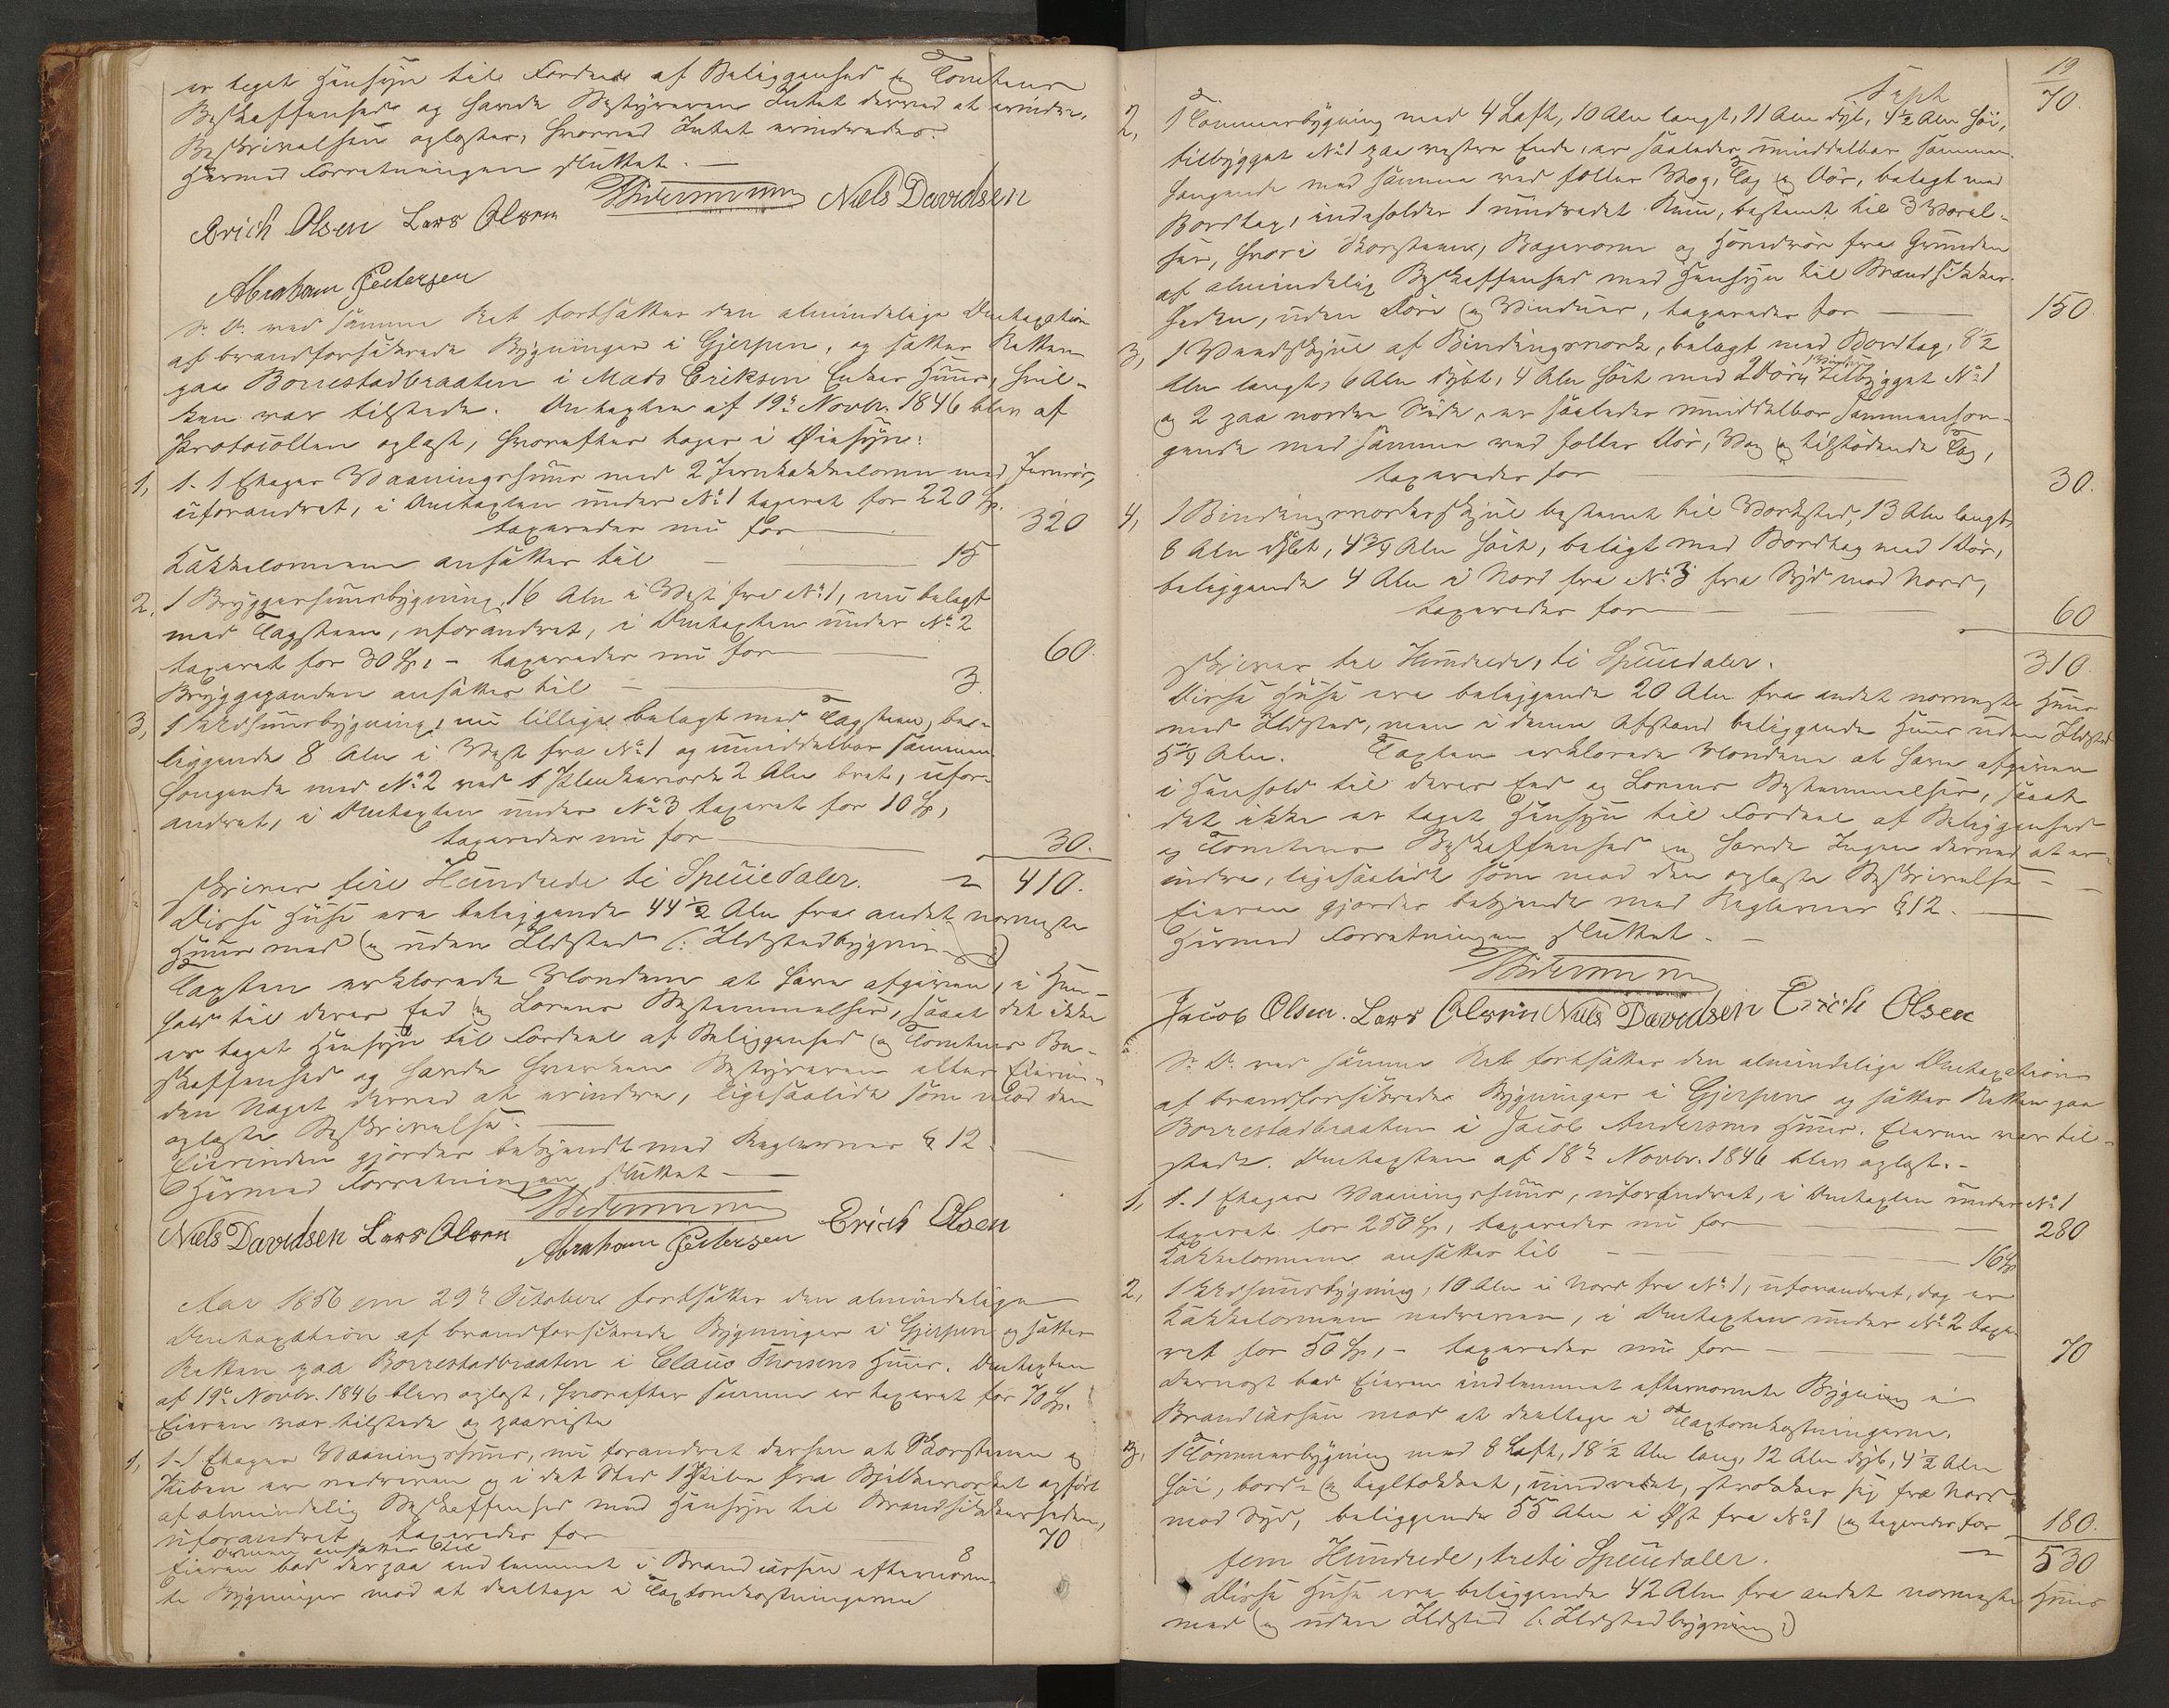 er taget Hensyn til Fordeele af Beliggenhed og Tomtens
Beskaffenhed og havde Bestyreren Intet derved at erindre.
Beskrivelsen oplæstes, hvorved Intet erindredes.
Hermed Forretningen sluttet. —
Widermann Niels Davidsen
Erich Olsen Lars Olsen
Abraham Pedersen
S. D. ved samme Ret fortsættes den almindelige Omtaxation
af brandforsikrede Bygninger i Gjerpen, og sattes Retten
paa Borrestadbraaten i Mads Eriksens Enkes Huus, hvil-
ken var tilstede. Omtaxten af 19de Novbr. 1846 blev af
Protocollen oplæst, hvorefter tages i Øiesyn:
1, 1. 1 Etages Vaaningshuus med 2 Jernkakkelovne med Jernrør,
uforandret, i Omtaxten under No 1 taxeret for 220 Sp.
taxeredes nu for — 320
Kakkelovnene ansættes til — 15
2. 1 Bryggerhuusbygning, 16 Alen i Vest fra No 1, nu belagt
med Tagsteen, uforandret, i Omtaxten under No 2
taxeret for 30 Sp, – taxeredes nu for — 60.
Bryggepanden ansættes til — 3.
3, 1 Vedhuusbygning, nu tillige belagt med Tagsteen, be-
liggende 8 Alen i Vest fra No 1 og umiddelbar sammen
hængende med No 2 ved 1 Plankeværk 2 Alen bredt, ufor-
andret, i Omtaxten under No 3 taxeret for 10 Sp,
taxeredes nu for — 30.
skriver fire Hundrede ti Speciedaler. 410.
Disse Huse ere beliggende 44 1/2 Alen fra andet nærmeste
Huus med og uden Ildsted (: Ildstedbygning :)
Taxten erklærede Mændene at have afgiven, i Hen-
hold til deres Eed og Lovens Bestemmelser, saaat det ikke
er taget Hensyn til Fordeele af Beliggenhed og Tomtens Be-
skaffenhed og havde hverken Bestyreren eller Eierin-
den Noget derved at erindre, ligesaalidt som mod den
oplæste Beskrivelse. —
Eierinden gjordes bekjendt med Reglernes § 12. —
Hermed Forretningen sluttet —
Widermann
Niels Davidsen Lars Olsen Abraham Pedersen Erich Olsen
Aar 1856 den 29de Octobere fortsættes den almindelige
Omtaxation af brandforsikrede Bygninger i Gjerpen og sattes
Retten paa Borrestadbraaten i Claus Thorsens Huus. Omtaxten
af 19de Novbr. 1846 blev oplæst, hvorefter samme er taxeret for 70 Sp.
Eieren var tilstede og paaviste
1, 1. 1 Etages Vaaningshuus, nu forandret derhen at Skorstenen og
Piben er nedreven og i det Sted 1 Pibe fra Bjelkeværket opført
af almindelig Beskaffenhed med Hensyn til Brandsikkerheden,
uforandret, taxeredes for — 70
Ovnen ansættes til 8
Eieren bad derpaa indlemmet i Brandcassen efternævn-
te Bygninger mod at deeltage i Taxtomkostningerne
19
Transpt 70.
2, 1 Tømmerbygning med 4 Laft, 10 Alen langt, 11 Alen dyb, 4 1/2 Alen høi,
tilbygget No 1 paa vestre Ende, er saaledes umiddelbar sammen
hængende med samme ved fælles Væg, Tag og Dør, belagt med
Bordtag, indeholder 1 uindredet Rum, bestemt til 3 Værel-
ser, hvori Skorsteen, Bagerovn og Hovedrør fra Grunden
af almindelig Beskaffenhed med Hensyn til Brandsikker-
heden, uden Døre og Vinduer, taxeredes for — 150.
3, 1 Vandskjul af Bindingsværk, belagt med Bordtag, 8 1/2
Alen langt, 6 Alen dybt, 4 Alen høit med 2 Døre, tilbygget No 1
og 2 paa nordre Side, er saaledes umiddelbar sammenhæn-
gende med samme ved fælles Dør, Væg og tilstødende Tag,
taxeredes for — 30.
4, 1 Bindingsværksskjul bestemt til Værksted, 13 Alen langt,
8 Alen dybt, 4 3/4 Alen høit, belagt med Bordtag med 1 Dør,
beliggende 4 Alen i Nord fra No 3 fra Syd mod Nord,
taxeredes for — 60
skriver tre Hundrede, ti Speciedaler. 310.
Disse Huse ere beliggende 20 Alen fra andet nærmeste Huus
med Ildsted, men i denne Afstand beliggende Huus uden Ildsted
5 1/4 Alen. Taxten erklærede Mændene at have afgiven
i Henhold til deres Eed og Lovens Bestemmelser, saaat
det ikke er taget Hensyn til Fordeel af Beliggenhed
og Tomtens Beskaffenhed og havde Ingen derved at er-
indre, ligesaalidt som mod den oplæste Beskrivelse —
Eieren gjordes bekjendt med Reglernes § 12. —
Hermed Forretningen sluttet. —
Widermann
Jacob Olsen. Lars Olsen Niels Davidsen Erich Olsen
S. D. ved samme Ret fortsættes den almindelige Omtaxation
af brandforsikrede Bygninger i Gjerpen og sattes Retten paa
Borrestadbraaten i Jacob Andersens Huus. Eieren var til-
stede. Omtaxten af 18de Novbr. 1846 blev oplæst. –
1, 1. 1 Etages Vaaningshuus, uforandret, i Omtaxten under No 1
taxeret for 250 Sp, taxeredes nu for — 280
Kakkelovnene ansættes til — 16 Sp
2, 1 Vedhuusbygning, 10 Alen i Nord fra No 1, uforandret, dog er
Kakkelovnen nedreven, i Omtaxten under No 2 taxe-
ret for 50 Sp, – taxeredes nu for — 70
Dernæst bad Eieren indlemmet efternævnte Bygning i
Brandcassen mod at deeltage i Taxtomkostningerne.
3, 1 Tømmerbygning med 8 Laft, 18 1/2 Alen lang, 12 Alen dyb, 4 1/2 Alen
høi, bord- og tegltækket, uindredet, strækker sig fra Nord
mod Syd, beliggende 55 Alen i Øst fra No 1 og taxeredes for 180.
fem Hundrede, treti Speciedaler. 530
Disse Huse ere beliggende 42 Alen fra andet nærmeste Huus
med og uden Ildsted (: Ildstedbygning :)